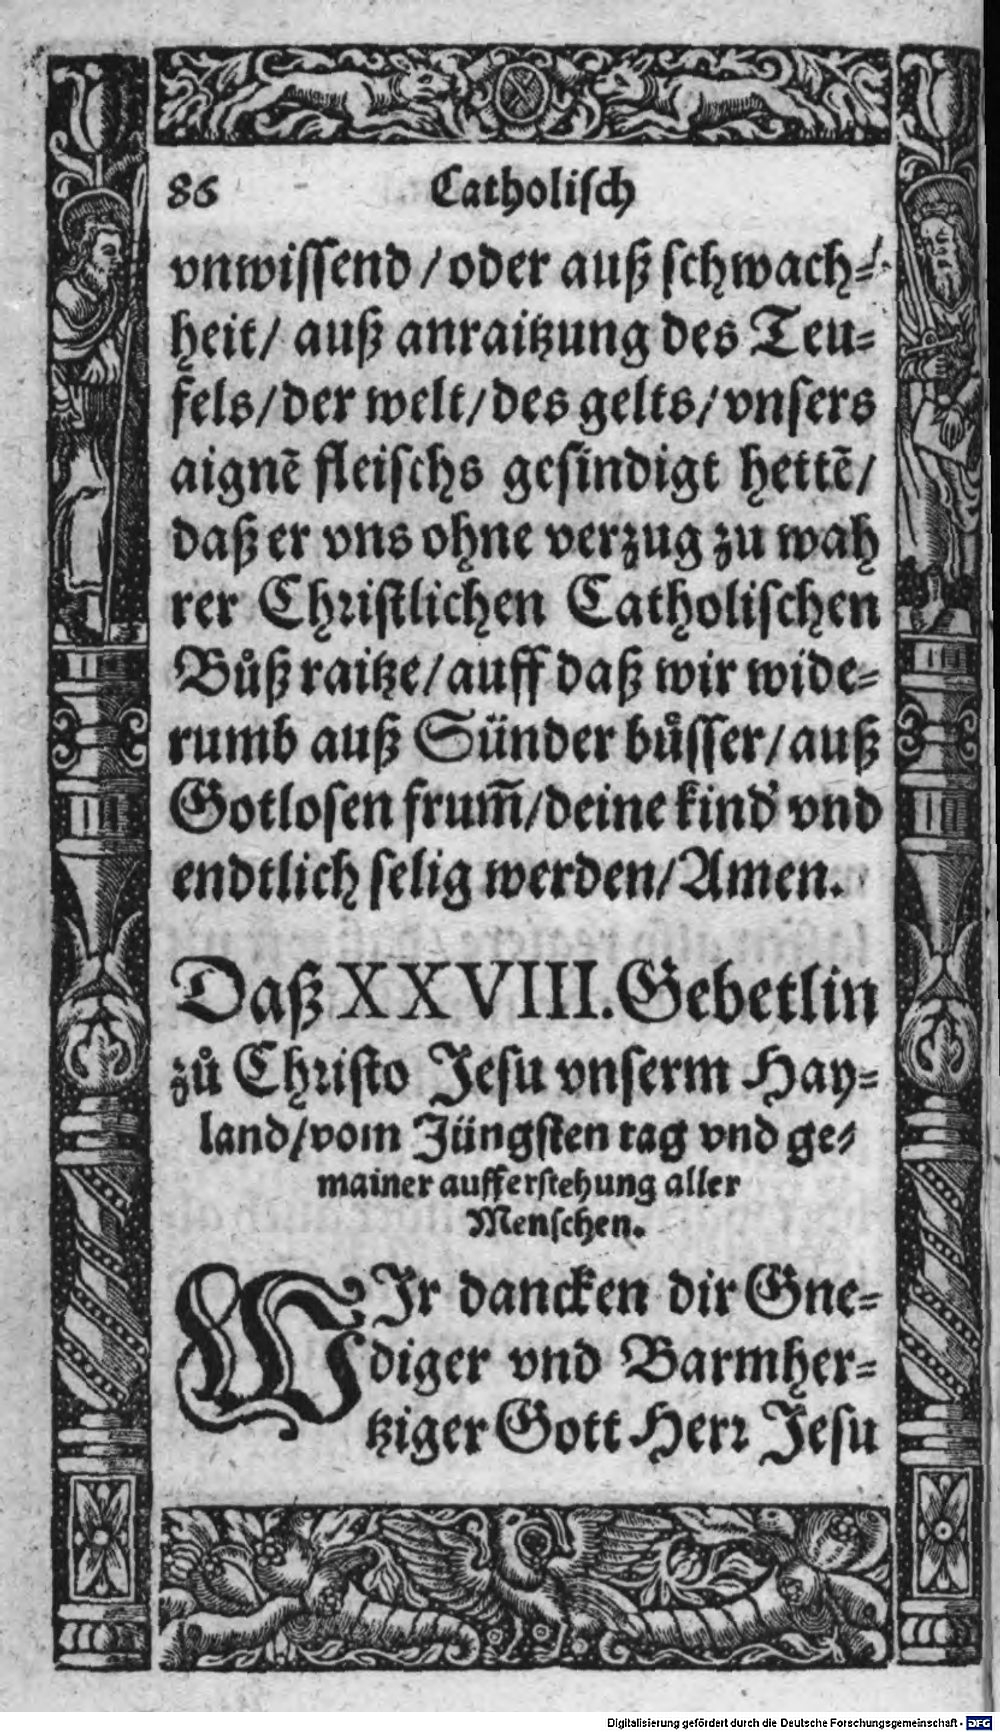 86 Catholisch
vnwissend / oder auß schwach=
heit / auß anraitzung des Teu=
fels / der welt / des gelts / vnsers
aignẽ fleischs gesindigt hettẽ /
daß er vns ohne verzug zu wah
rer Christlichen Catholischen
Bůß raitze / auff daß wir wide=
rumb auß Sünder bůsser / auß
Gotlosen frum̃ / deine kind vnd
endtlich selig werden / Amen.
Daß XXVIII. Gebetlin
zů Christo Jesu vnserm Hay=
land / vom Jüngsten tag vnd ge=
mainer aufferstehung aller
Menschen.
WIr dancken dir Gne=
diger vnd Barmher=
tziger Gott Herr Jesu
Digitalisierung gefördert durch die Deutsche Forschungsgemeinschaft - DFG